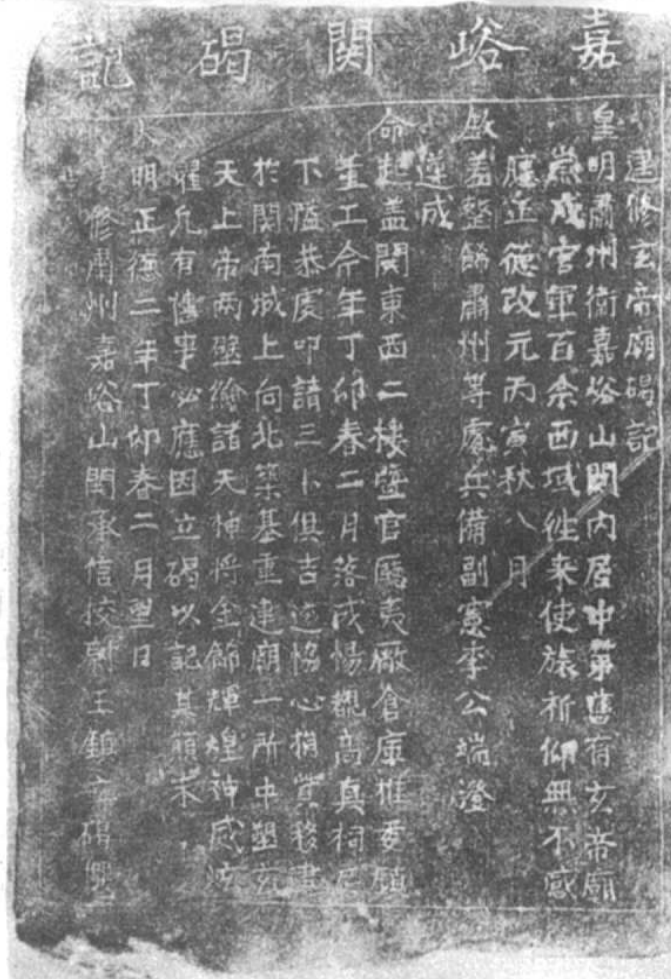 嘉峪關碣記
建修玄帝廟碣記
皇明肅州衛嘉峪山關內居中第舊有玄帝廟
歲戍官軍百余西域往來使旅祈仰無不感
應正德改元丙寅秋八月
欽差整飭肅州等處兵備副憲李公端澄
遂成
命起蓋關東西二樓暨官廳夷廠倉庫推委鎮
董工今年丁卯春二月落成惕觀高真祠
下隘恭虔叩請三卜俱吉迺協心捐貲移
於關南城上向北築基重建廟一所中塑玄
天上帝兩壁繪諸天神將金飾輝煌神威
耀允有禱事必應因立碣以記其願末
大明正德二年丁卯春二月望日
修肅州嘉峪山關承信校尉王鎮立碣